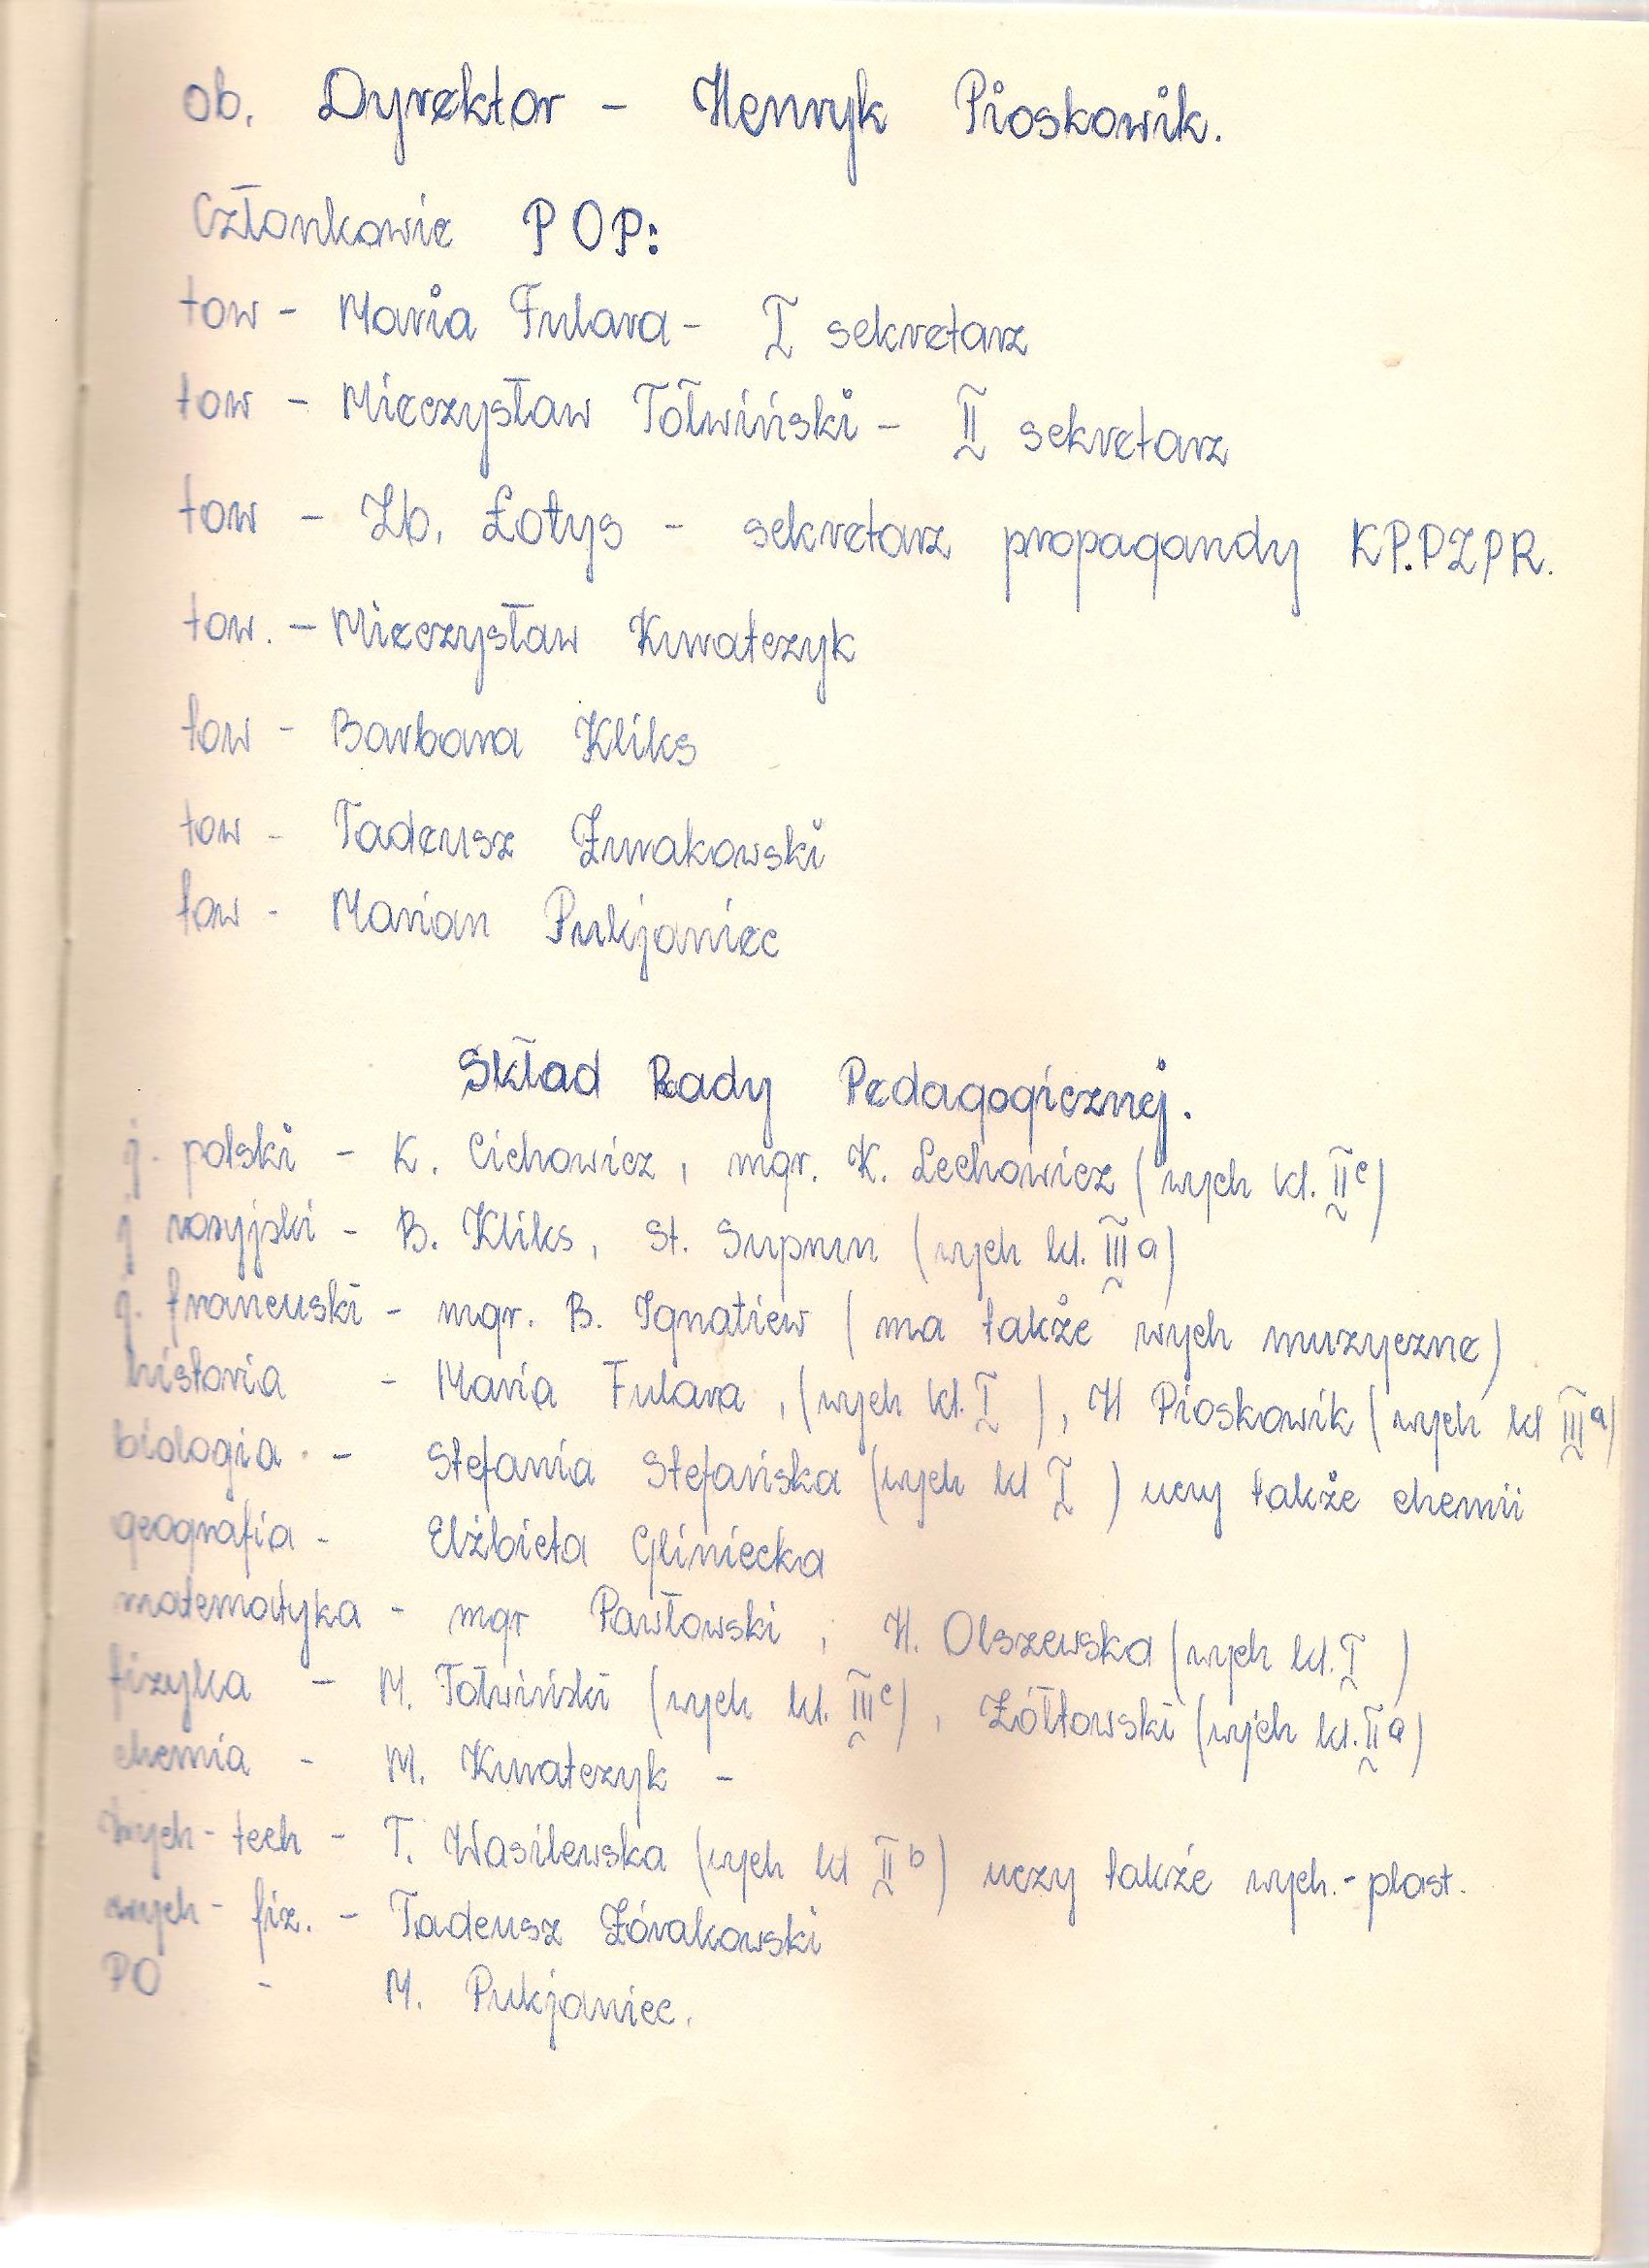 ob. Dyrektor - Henryk Pioskowik.
Członkowie POP:
tow - Maria Fulara - I sekretarz
tow - Mieczysław Tołwiński - II sekretarz
tow - Zb. Łotys - sekretarz propagandy KP.PZPR.
tow. - Mieczysław Kuratczyk
tow - Barbara Kliks
tow - Tadeusz Żurakowski
tow - Marian Pukjaniec
Skład Rady Pedagogicznej.
j. polski - K. Cichowicz, mgr. K. Lechowicz (wych kl. II c)
j rosyjski - B. Kliks, St. Suprun (wych kl. III a)
j. francuski - mgr. B. Ignatiew (ma także wych muzyczne)
historia - Maria Fulara, (wych kl. I ), H Pioskowik (wych kl III a)
biologia - Stefania Stefańska (wych kl I ) uczy także chemii
geografia - Elżbieta Gliniecka
matematyka - mgr Pawłowski, H. Olszewska (wych kl. I )
fizyka - M. Tołwiński (wych kl. III c), Żółtowski (wych kl. II a)
chemia - M. Kuratczyk -
wych-tech - T. Wasilewska (wych kl II b) uczy także wych.-plast.
wych- fiz. - Tadeusz Żórakowski
PO - M. Pukjaniec.